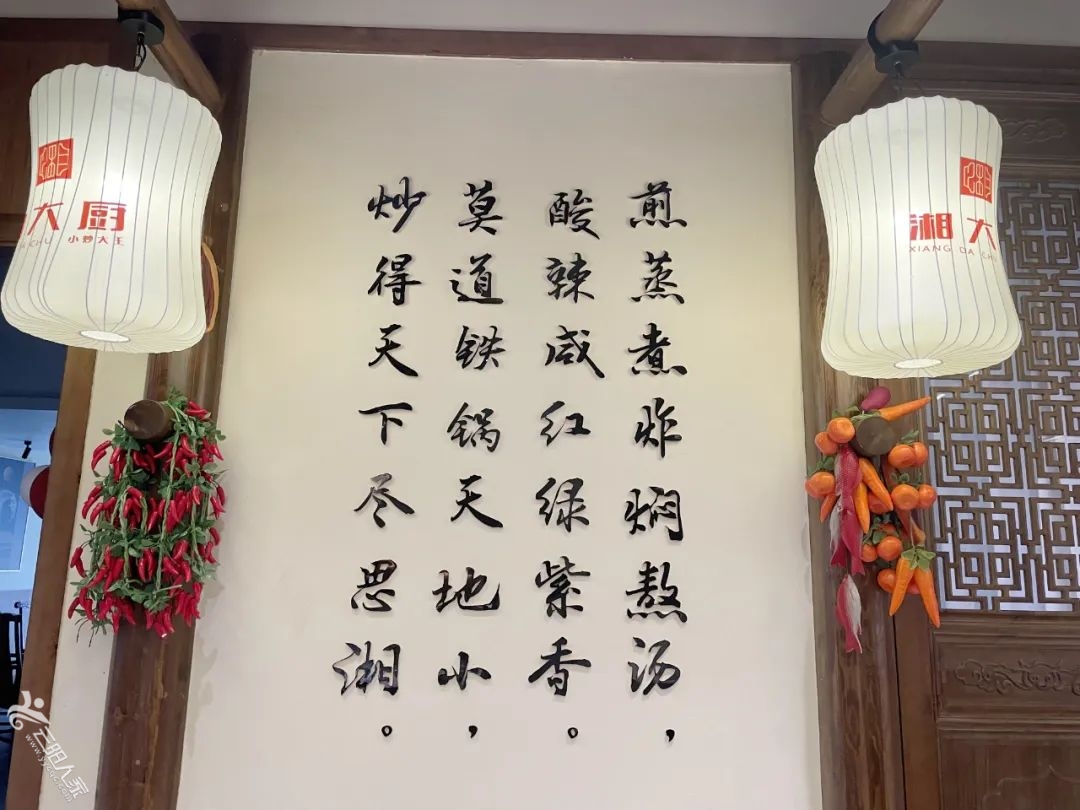 煎蒸煮炸焖熬汤，
酸辣咸红绿紫香。
莫道铁锅天地小，
炒得天下尽思湘。
大厨
CHU 小炒大王
湘
湘大
XIANG DA CH
云阳人家